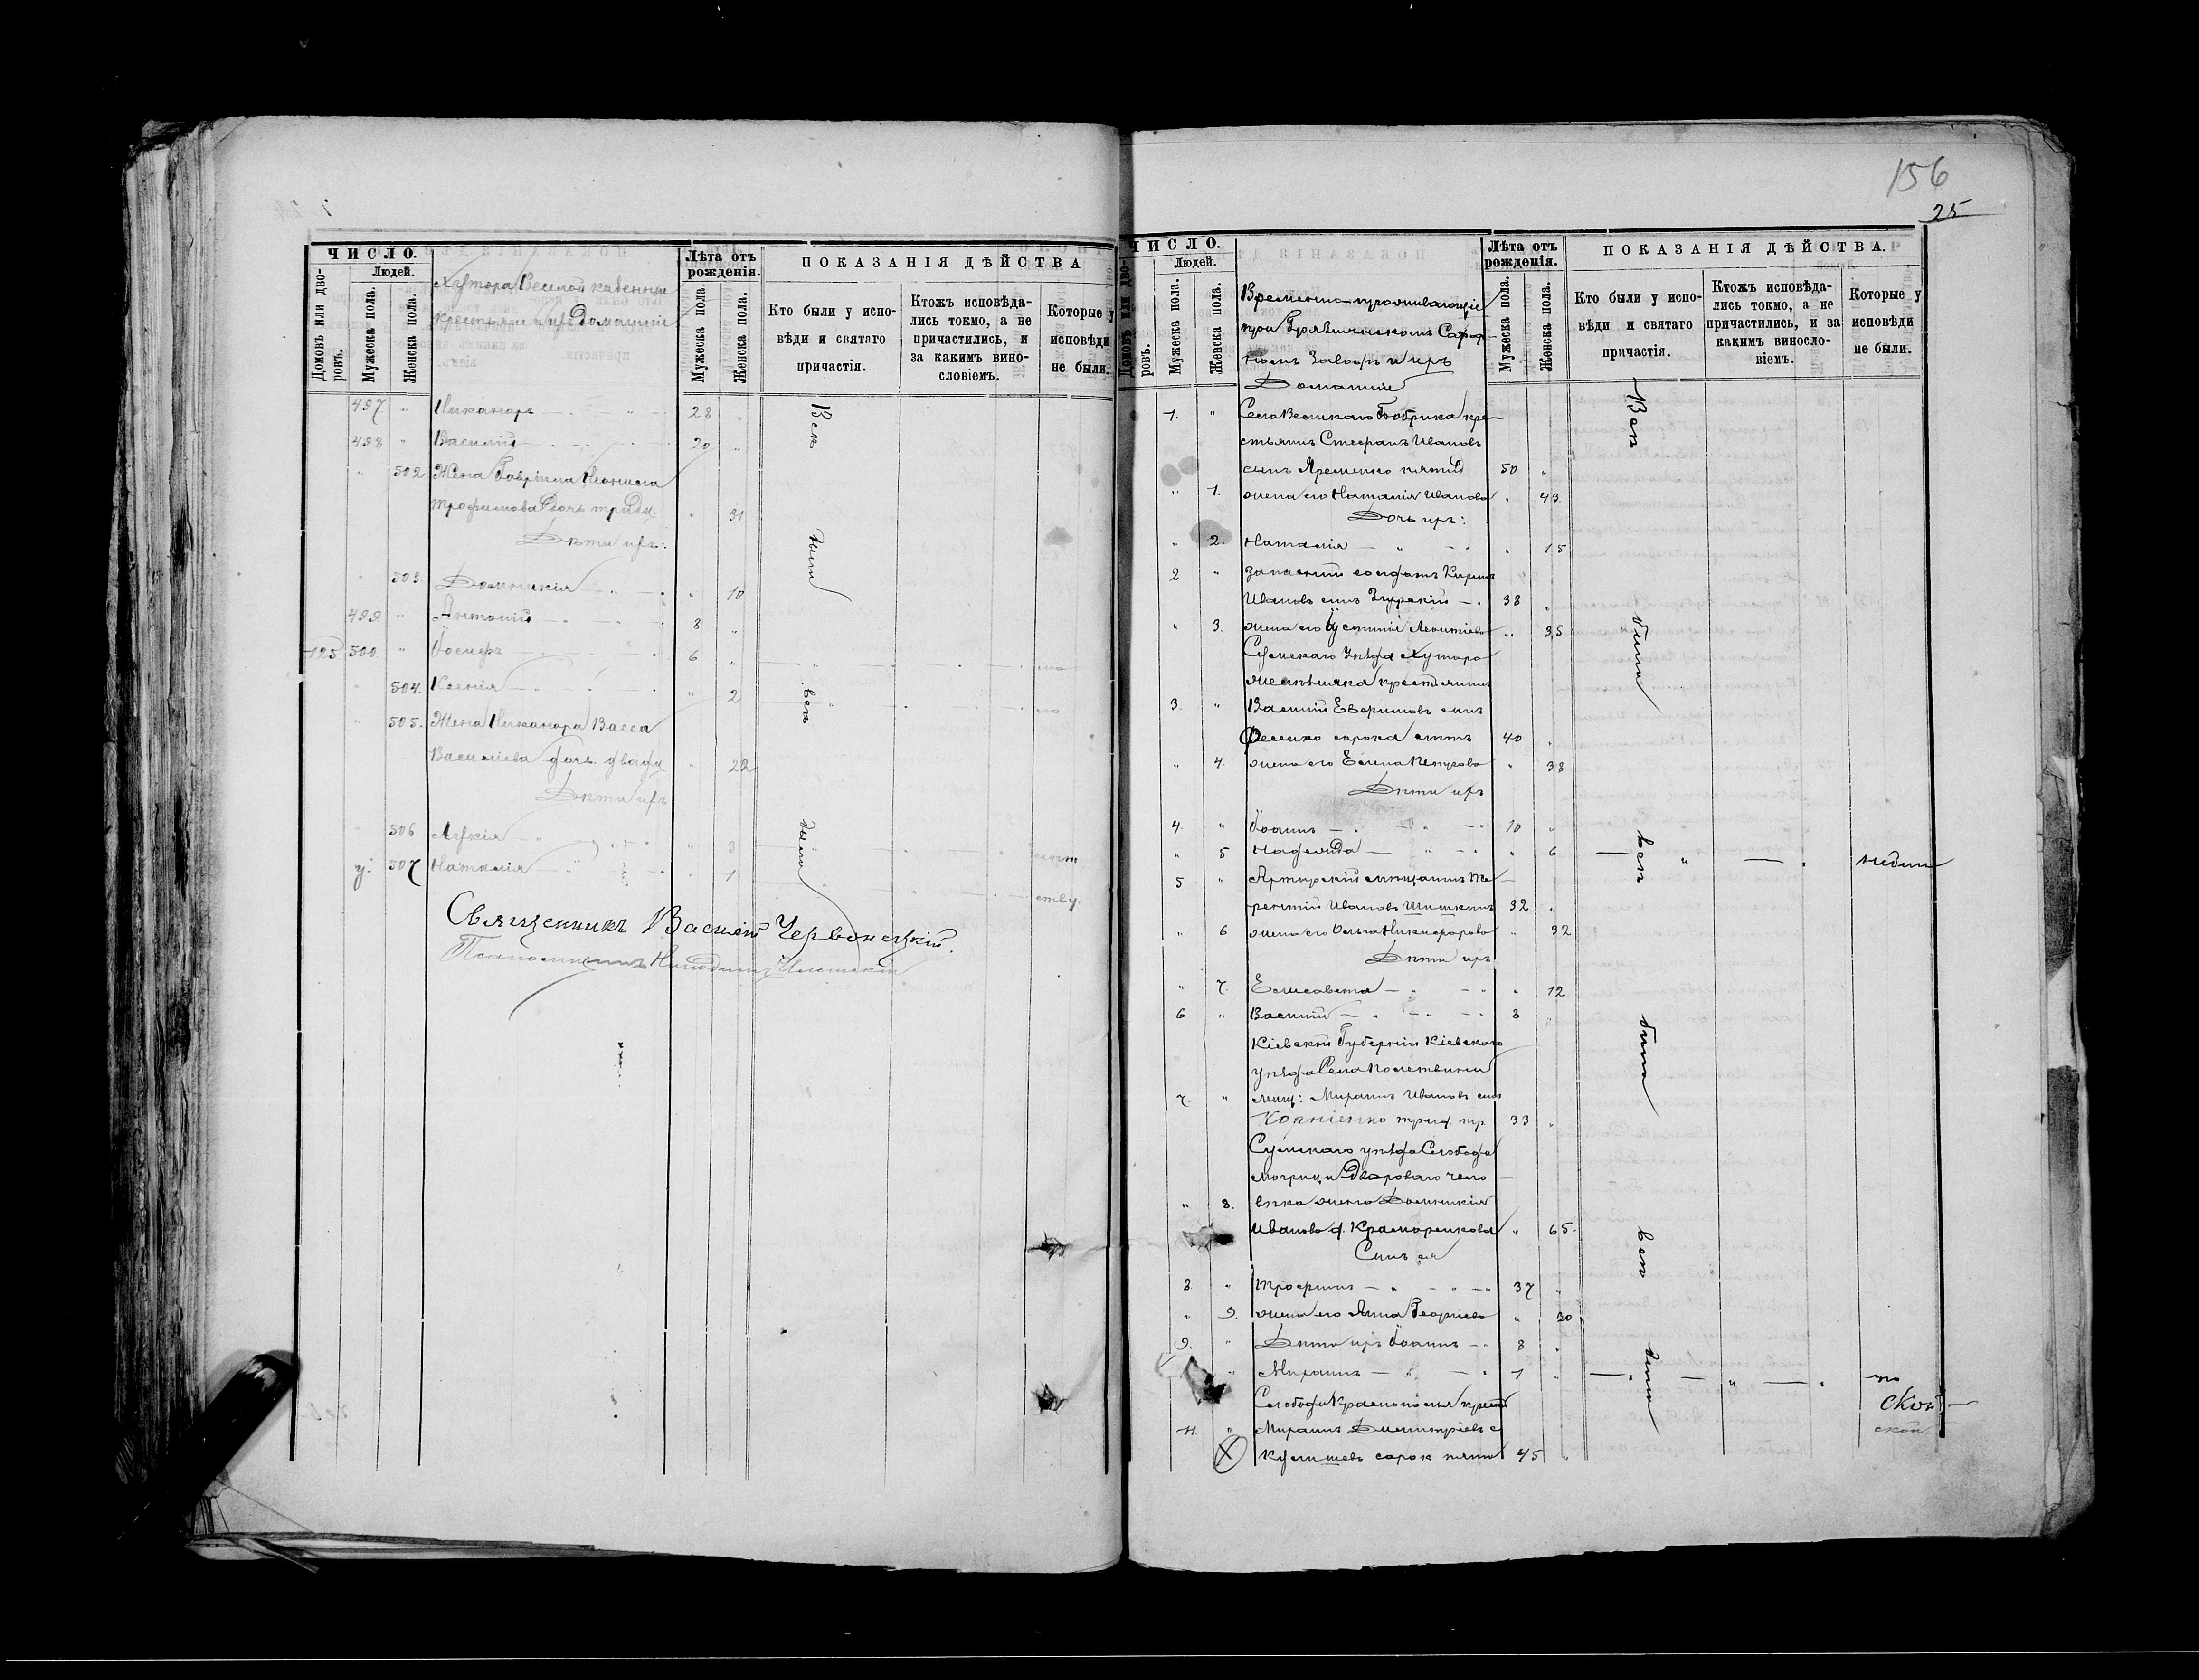 ЧИСЛО.
Людей.
Домовъ или дво-
ровъ.
Мужеска пола.
Женска пола.
Хутора Веселой казенные
крестьяне и ихъ Домашніе
Лѣта отъ
рожденія.
Мужеска пола.
Женска пола.
ПОКАЗАНІЯ ДѢЙСТВА
Кто были у испо-
вѣди и святаго
причастія.
Ктожъ исповѣда-
лись токмо, а не
причастились, и
за какимъ вино-
словіемъ.
Которые у
исповѣди
не были.
497 " Никаноръ 28 "
498 " Василій 20 "
" 502 Жена Гавріила Неонила
Трофимова Дочь тридц. " 31
Дѣти ихъ:
503. Домникія " 10
499. " Антоній 8 "
125 500. " Іосифъ 6 "
504. Ксенія " 2
505. Жена Никанора Васса
Василіева дочь двадц " 22
Дѣти ихъ
506. Лукія " 3
507 Наталія " 1
Всѣ
были
всѣ
были
Священникъ Василій Червонецкій.
156
25
ЧИСЛО.
Людей.
Домовъ или дво-
ровъ.
Мужеска пола.
Женска пола.
Временно-проживающіе
при Гр Сахар-
номъ Заводѣ и ихъ
Домашніе
Лѣта отъ
рожденія.
Мужеска пола.
Женска пола.
ПОКАЗАНІЯ ДѢЙСТВА.
Кто были у испо-
вѣди и святаго
причастія.
Ктожъ исповѣда-
лись токмо, а не
причастились, и за
какимъ винослo-
віемъ.
Которые у
исповѣди
не были.
1. " Села Великаго Бобрика кре-
стьянинъ Стефанъ Ивановъ
сынъ Яременко пятид 50 "
" 1. жена его Наталія Иванова " 43.
Дочь ихъ:
" 2. Наталія " 15
2 " запасный солдатъ Кириллъ
Ивановъ сынъ 38 "
" 3. жена его Іустинія Леонтіева " 35
Сумскаго Уѣзда Хутора
крестьянинъ
3. " Василій Евфимовъ сынъ
Фесенко сорока лѣтъ 40 "
" 4. жена его Елена Петрова " 38
Дѣти ихъ
4. " Іоаннъ 10 "
" 5 Надежда " 6
5 " Ахтырскій мещанинъ Те-
рентій Ивановъ Шишкинъ 32 "
" 6 жена его Ольга Никифорова " 32
Дѣти ихъ
" 7. Елисавета " 12
6 " Василій 8 "
Кіевской Губерніи Кіевскаго
уѣзда Села
7. " мещ: Михаилъ Ивановъ сынъ
Корніенко трид. тр 33 "
Сумскаго уѣзда Слободы
Могрицы Двороваго чело-
" 8. вѣка жена Домникія
Иванова д. Крамаренкова " 65.
Сынъ ея
8 " Трофимъ 37 "
" 9. жена его Анна Георгіева " 30
9. " Дѣти ихъ Іоаннъ 8 "
" Михаилъ 1 "
Слободы Краснополья крест
11. " Михаилъ Димитріевъ с
Кулишевъ сорок пять 45 "
Всѣ
были
всѣ
были
всѣ
были